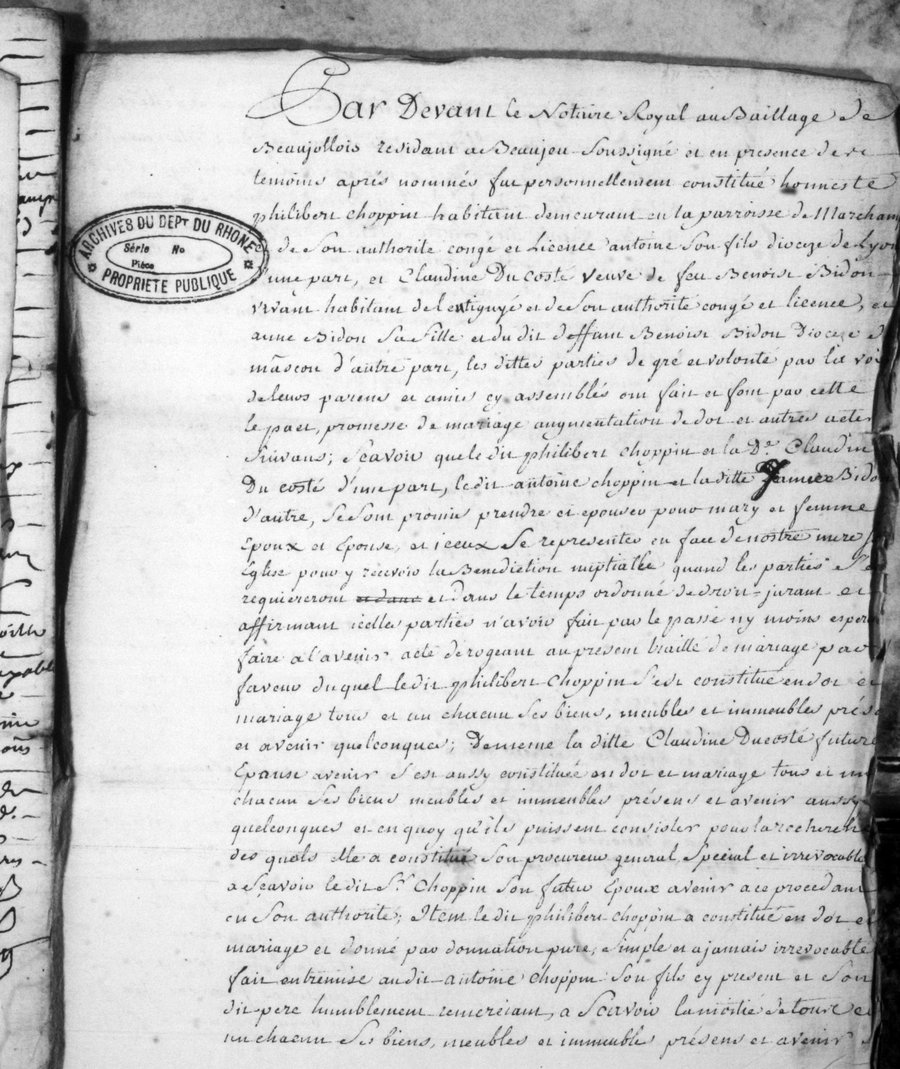 Par Devant le Notaire Royal au Baillage de
Beaujollois residant a Beaujeu soussigné et en presence de
temoins aprés nommés fut personnellement constitué honneste
philibert choppin habitant demeurant en la parroisse de Marcham
et de son authorité congé et Licence antoine son fils dioceze de Lyon
d'une part, et Claudine Du costé veuve de feu Benoist Bidon
vivant habitant de lentiguyé et de son authorité congé et licence, et
anne Bidon sa fille et du dit deffunt Benoist Bidon Dioceze d
mascon d'autre part, les dittes parties de gré et volonté par la voi
de leurs parens et amis cy assemblés ont fait et font par cette
le pact, promesse de mariage augmentation de dot et autres actes
suivans; scavoir que le dit philibert choppin et la De. Claudin
Du costé d'une part, le dit antoine choppin et la ditte anne Bidon
d'autre, se sont promis prendre et epouser pour mary et femme
Epoux et Epouse, et iceux se representer en face de nostre mere s
Eglise pour y recevoir la Benediction nuptialle quand les parties s'e
requiereront et dans et dans le temps ordonné de droit - jurant et
affirmant icelles parties n'avoir fait par le passé ny moins esper
faire a l'avenir acte derogeant au present traitté de mariage par
faveur du quel le dit philibert Choppin s'est constitué en dot et
mariage tous et un chacun ses biens, meubles et immeubles prése
et avenir quelconques; De meme la ditte Claudine Ducosté future
Epouse avenir s'est aussy constituée en dot et mariage tous et un
chacun ses biens meubles et immeubles présens et avenir aussy
quelconques et en quoy qu'ils puissent consister pour la recherche
des quels elle a constitué son procureur general, special et irrevocable
a scavoir le dit Sr. Choppin son futur Epoux avenir a ce procedant
en son authorité; Item le dit philibert choppin a constitué en dot et
mariage et donné par donnation pure, simple et a jamais irrevocable
fait entremise au dit antoine choppin son fils cy present et son
dit pere humblement remerciant, a scavoir la moitié de tous et
un chacun ses biens, meubles et immeubles présens et avenir
ARCHIVES DU DEPT DU RHONE
Série No
Pièce
PROPRIETE PUBLIQUE